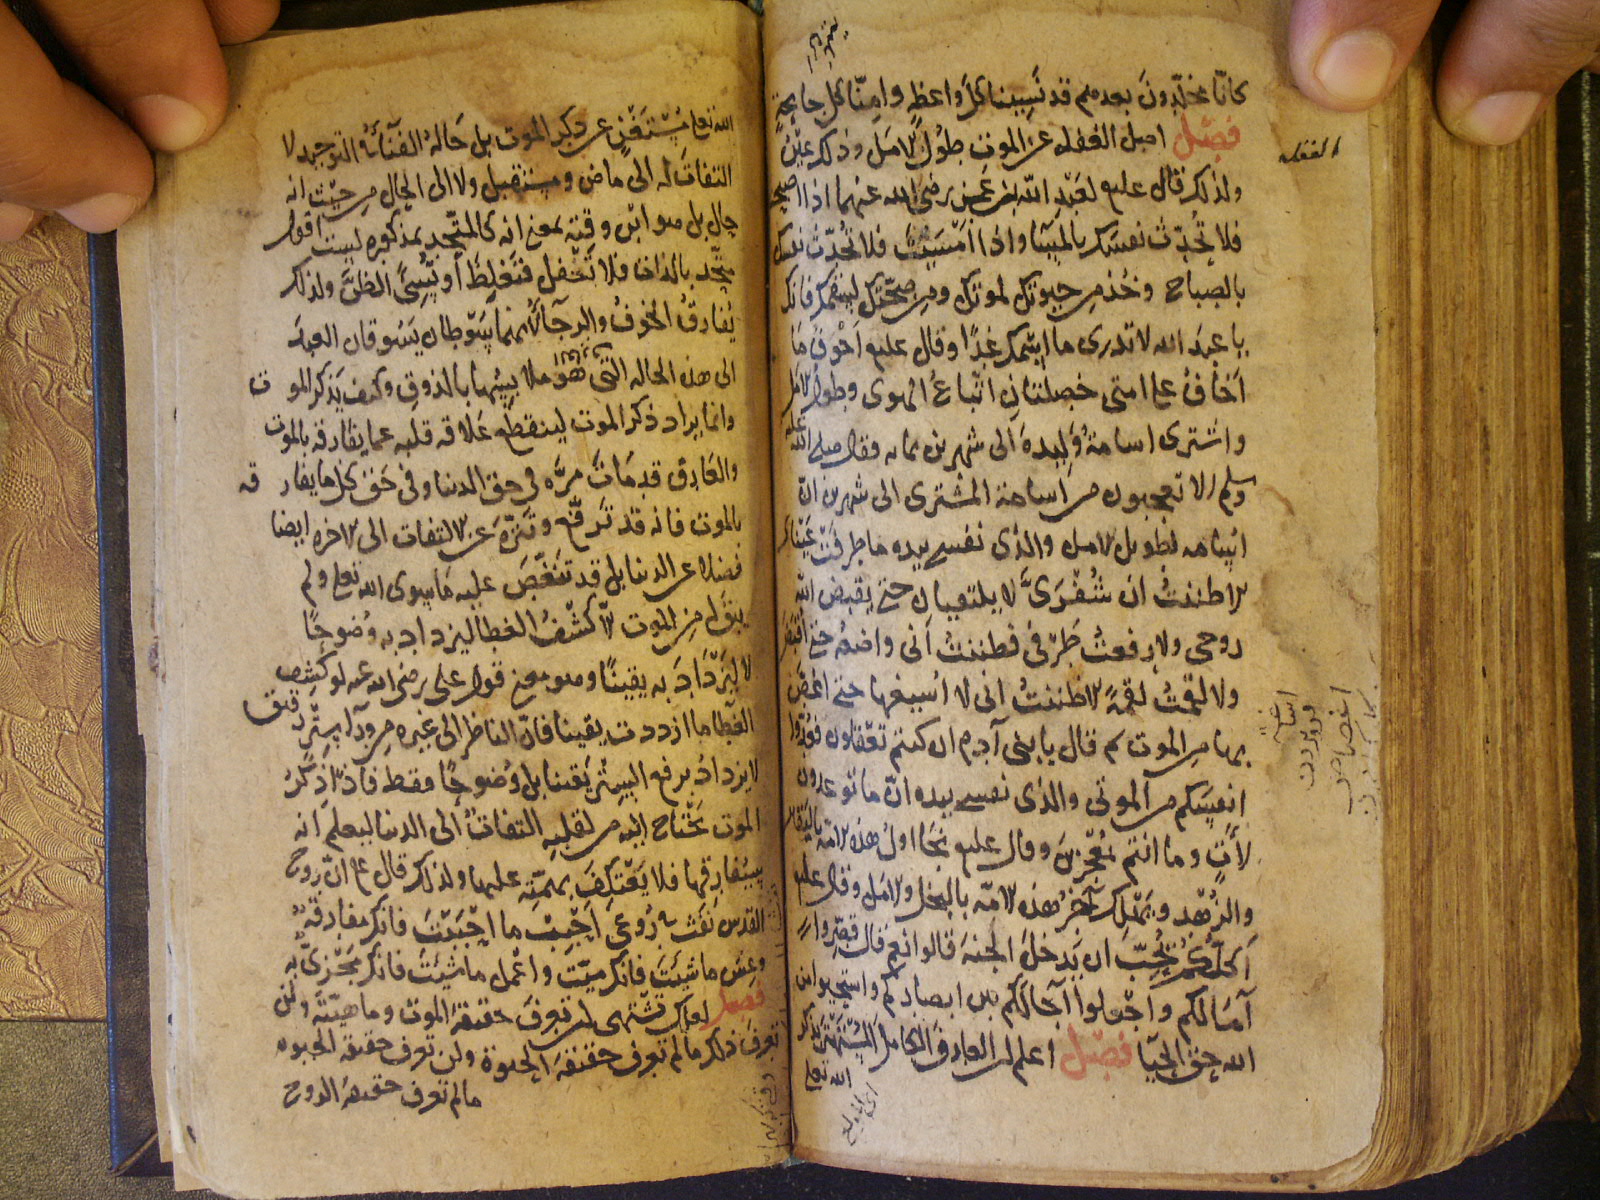 كانا مخلدون بعدهم قد نسينا كل واعظ وامنا كل جايحة
فصل اصل الغفله عن الموت طول الامل وذلك عين
الغفله
ولذلك قال عليه لعبد الله بن عمر رضى الله عنهما اذا اصبحت
فلا تحدث نفسك بالمسا واذا امسيت فلا تحدث نفسك
بالصباح وخذ من حيوتك لموتك ومن صحتك لسقمك فانك
يا عبد الله لا تدرى ما اسمك غدا وقال عليه اخوف ما
اخاف على امتى خصلتان اتباع الهوى وطول الامل
واشترى اسامة وليدة الى شهرين بمايه فقال صلى الله عليه
وسلم الا تعجبون من اسامة المشترى الى شهرين ان
اسامه لطويل الامل والذى نفسى بيده ما طرفت عيناى
الا ظننت ان شفرى لا يلتقيان حتى يقبض الله
روحى ولا رفعت طرفى فظننت انى واضعه حتى اقبض
ولا لقمت لقمة الا ظننت انى لا اسيغها حتى اغص
بها من الموت ثم قال يا بنى آدم ان كنتم تعقلون فعدوا
انفسكم من الموتى والذى نفسى بيده ان ما توعدون
لآت وما انتم بمعجزين وقال عليه نجا اول هذه الامة باليقين
والزهد ويهلك آخر هذه الامة بالبخل والامل وقال عليه
اكلكم يحب ان يدخل الجنة قالوا نعم قال قصروا
آمالكم واجعلوا آجالكم بين ابصاركم واستحيوا من
الله حق الحيا فصل اعلم ان العارف الكامل المستهتر بذكر
الله تعالى
الله تعالى مستغن عن ذكر الموت بل حاله الفناء فى التوحيد لا
التفات له الى ماض ومستقبل ولا الى الحال من حيث انه
حال بل هو ابن وقته بمعنى انه كالمتحد بمذكوره لست اقول
متحد بالذات فلا تغفل فتغلط او تسئ الظن ولذلك
يفارق الخوف والرجا لانهما سوطان يسوقان العبد
الى هذه الحاله التى هو ملابسها بالذوق وكيف يذكر الموت
وانما يراد ذكر الموت لينقطع علاقه قلبه عما يفارقه بالموت
والعارف قد مات مره فى حق الدنيا وفى حق كل ما يفارقه
بالموت فانه قد ترفع وتنزه عن الالتفات الى الاخره ايضا
فضلا عن الدنيا بل قد تنغص عليه ما سوى الله تعالى ولم
يبق له من الموت الا كشف الغطا ليزداد به وضوحا
لا ليزداد به يقينا وهو معنى قول على رضى الله عنه لو كشف
الغطا ما ازددت يقينا فان الناظر الى غيره من ورآ ستر رقيق
لا يزداد برفع الستر يقينا بل وضوحا فقط فاذا ذكر
الموت يحتاج اليه من لقلبه التفات الى الدنيا ليعلم انه
سيفارقها فلا يعتكف بهمته عليها ولذلك قال عم ان روح
القدس نفث فى روعى احبب ما احببت فانك مفارقه
وعش ما شئت فانك ميت واعمل ما شئت فانك مجزى به
فصل لعلك تشتهى ان تعرف حقيقة الموت وماهيته ولن
تعرف ذلك ما لم تعرف حقيقة الحيوة ولن تعرف حقيقة الحيوه
ما لم تعرف حقيقة الروح